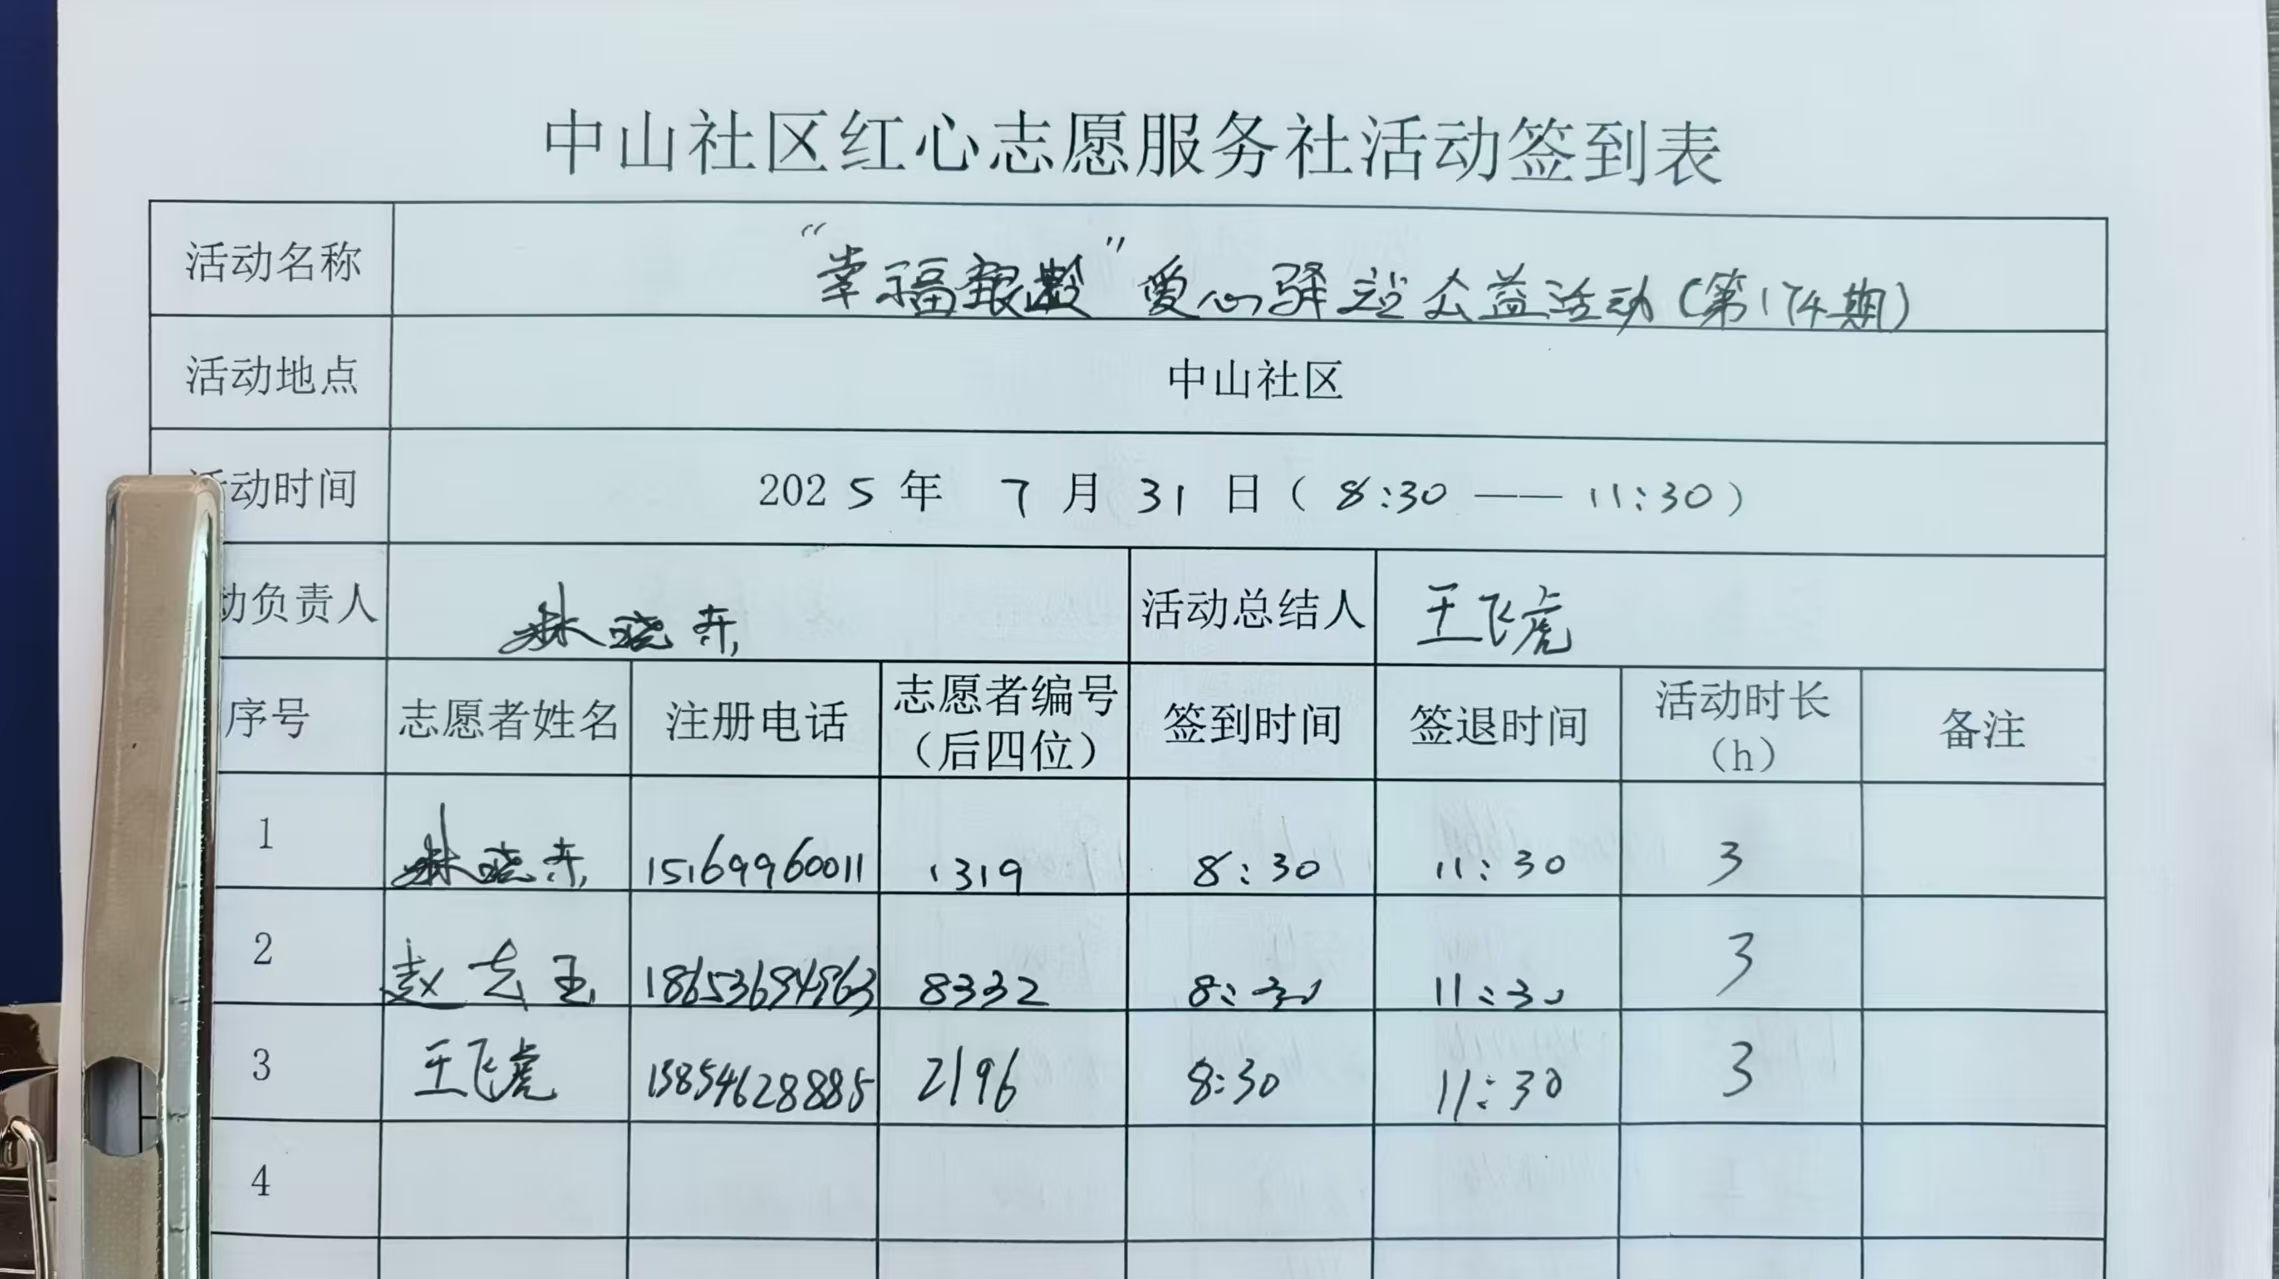 中山社区红心志愿服务社活动签到表
活动名称 “幸福银龄”爱心驿站公益活动(第174期)
活动地点 中山社区
活动时间 2025年 7月31日(8:30——11:30)
动负责人 林晓东 活动总结人 王飞虎
序号 志愿者姓名 注册电话 志愿者编号(后四位) 签到时间 签退时间 活动时长(h) 备注
1 林晓东 15169960011 1319 8:30 11:30 3
2 赵志玉 18653694963 8332 8:30 11:30 3
3 王飞虎 15854628885 2196 8:30 11:30 3
4